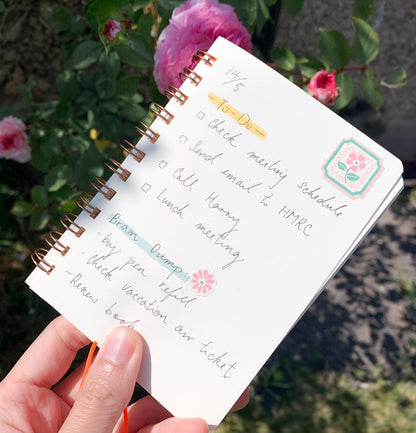 14/5
To-Do
check meeting schedule
Send email to HMRC
Call Harry
Lunch meeting
Brain Dump
- by pen refill
- check vaccation air ticket
- Renew book